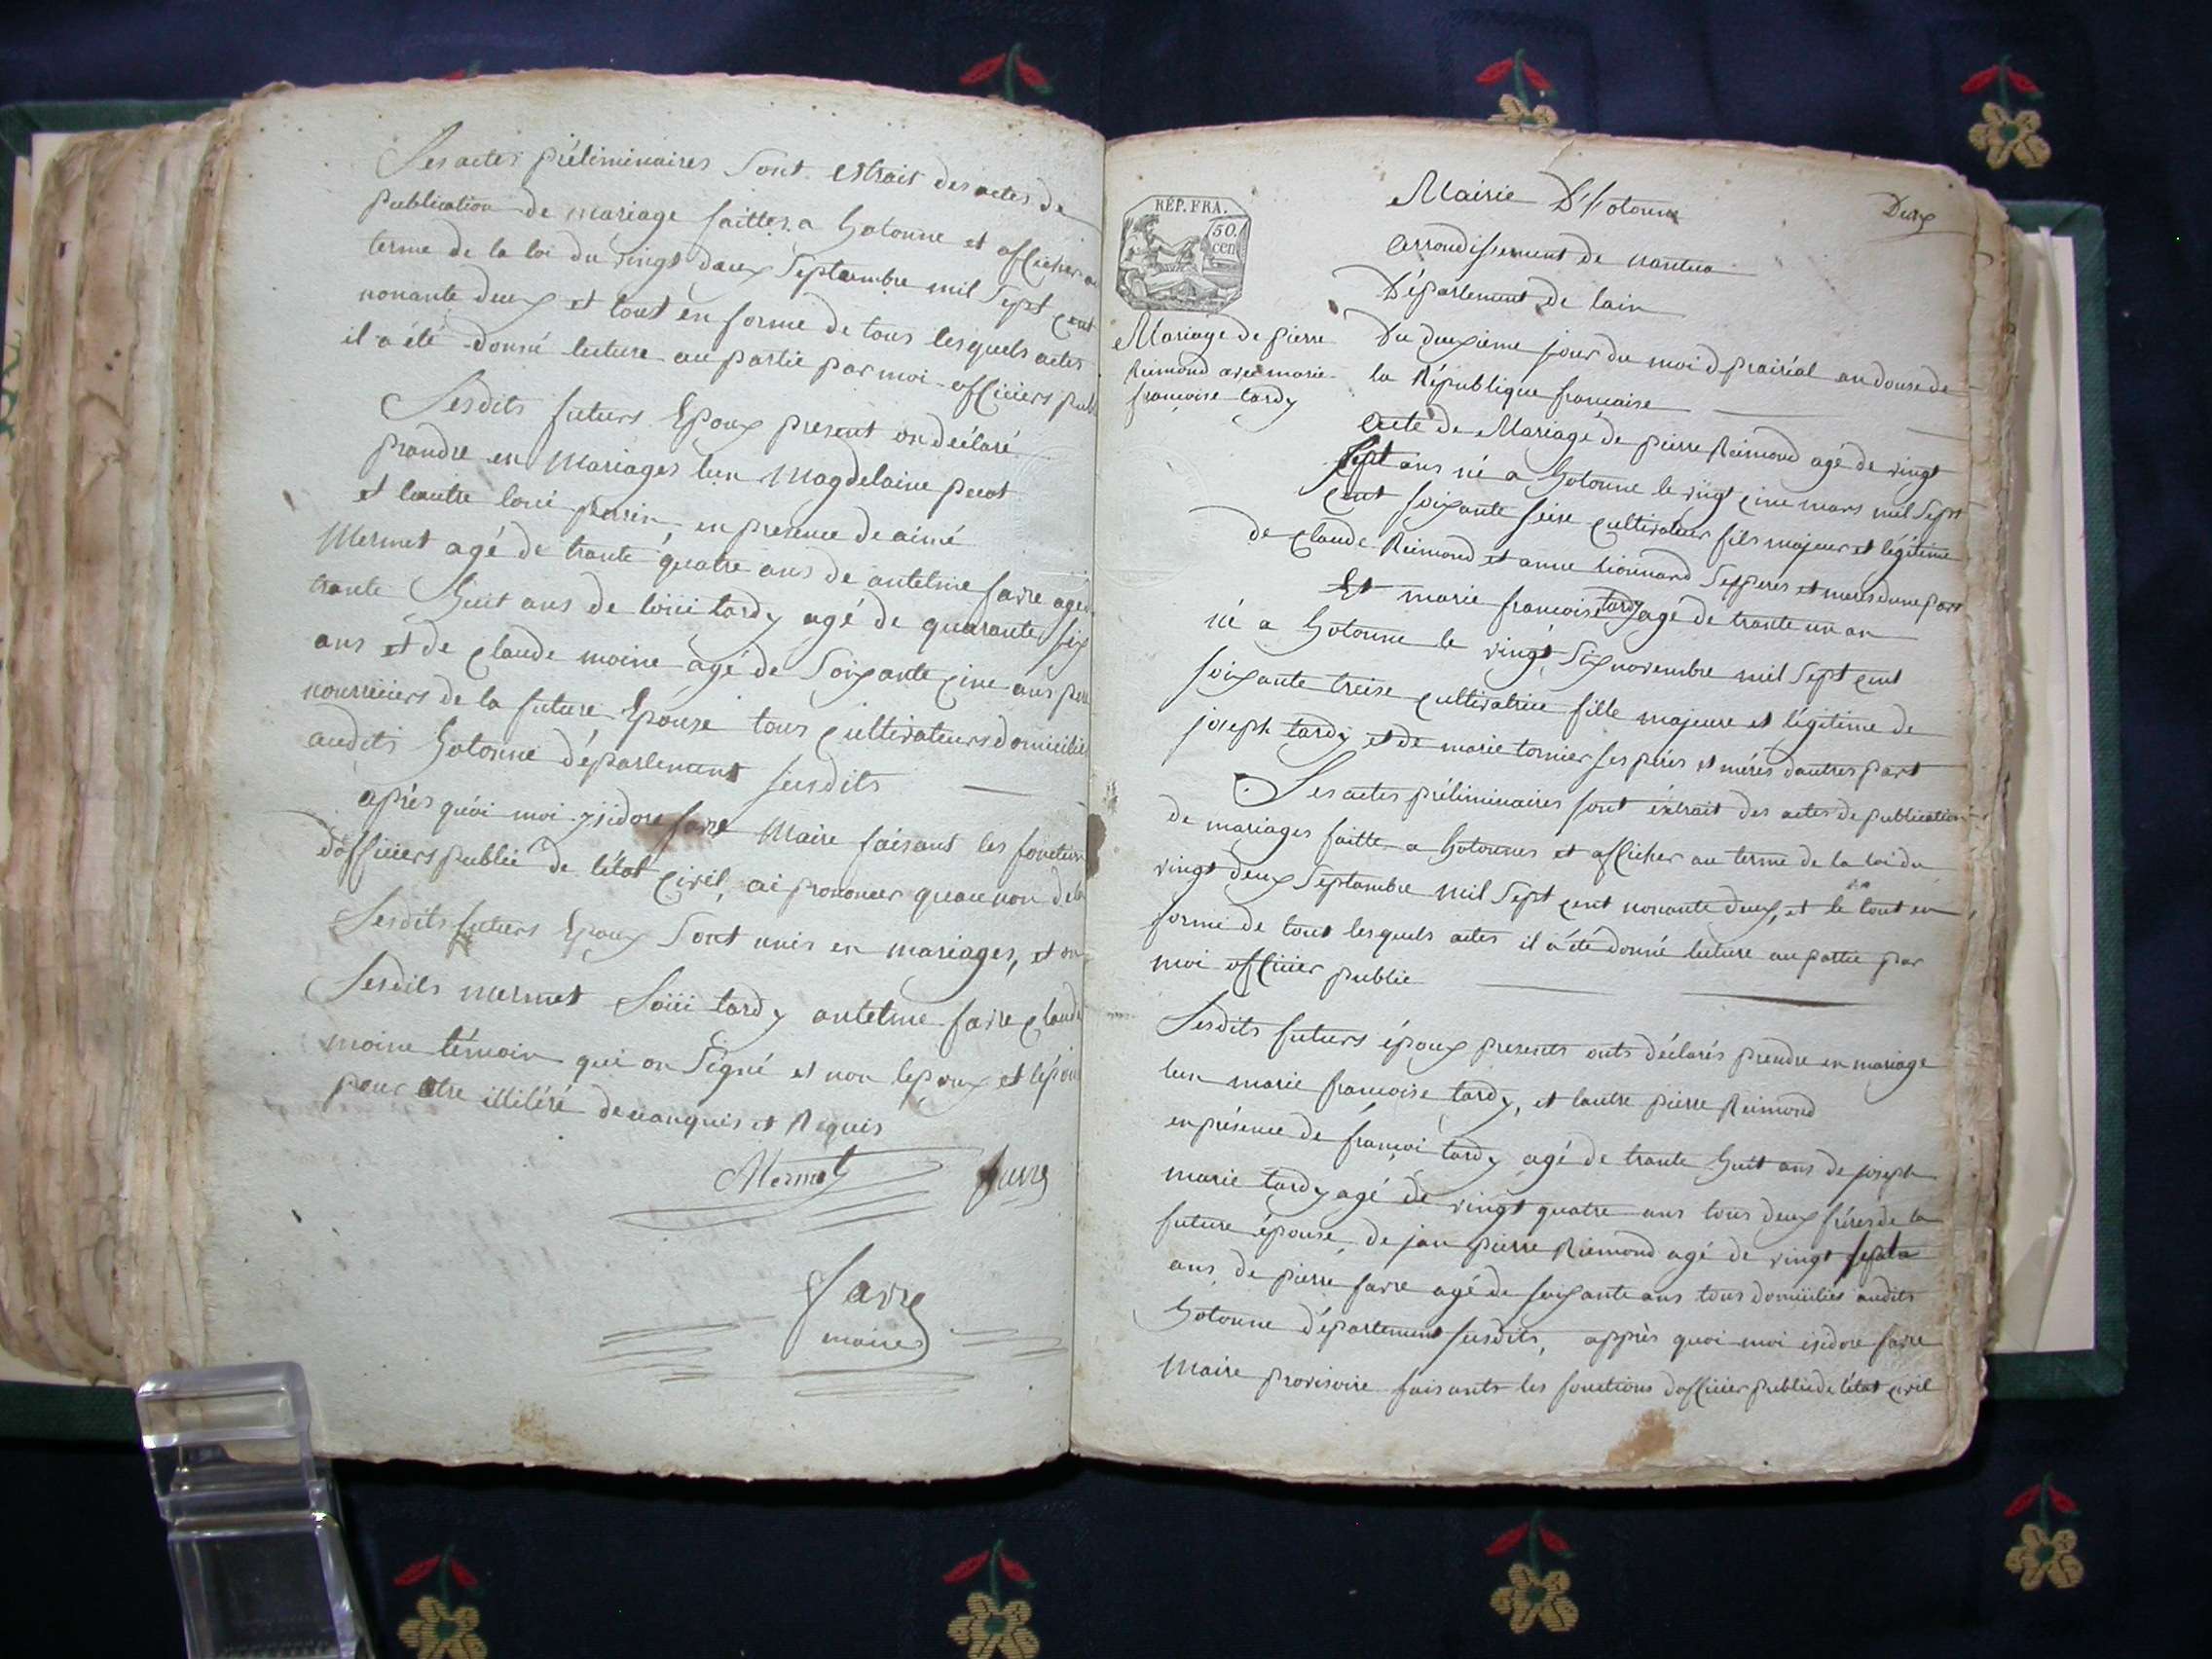 Les actes préliminaires Sont extrait des actes de
publication de mariage faittes a hotonne et afficher au
terme de la loi du vingt deux Septembre mil Sept cent
nonante deux et tout en forme de tous lesquels actes
il a été donné lecture au partie par moi officiers publ
Lesdits futurs Epoux present on déclaré
prandre en Mariages lun Magdelaine perot
et lautre loui perrin en presence de aimé
Mermet agé de trante quatre ans de antelme favre agé
trante huit ans de loüi tardy agé de quarante six
ans et de claude moine agé de Soixante cinc ans pere
nourriciers de la future Epouse tous cultivateurs domicilié
audits hotonne département susdits
après quoi moi isidore favre Maire faisant les fonction
d'officiers publié de l'état civil, ai prononcer quau non de la
Lesdits futurs Epoux Sont unis en mariages, et on
Lesdits mermet Loüi tardy antelme favre claude
moine témoin qui on Signé et non lepoux et lépou
pour etre illiteré de ce anquis et Requis
Mermet favre
favre
maire
Mairie D'hotonne
Deux
RÉP. FRA.
50.
cen
arrondissement de nantua
Département de lain
Mariage de pierre
Reimond avec marie
francoise tardy
Du deuxieme jour du moi d prairéal an douse de
la République francaise
Acte de Mariage de pierre Reimond agé de vingt
Sept ans né a hotonne le vingt cinc mars mil Sept
cent soixante seise cultivateur fils majeur et légitime
de claude Reimond et anne lionnard Ses peres et meres dune part
Et marie francoise tardy agé de trante un an
né a hotonne le vingt Six novembre mil Sept cent
soixante treise cultivatrice fille majeure et légitime de
joseph tardy et de marie tornier ses péres et méres dautres part
Les actes préliminaires sont éxtrait des actes de publication
de mariages faitte a hotonnes et afficher au terme de la loi du
vingt deux Septambre mil Sept cent nonante deux, et le tout en
forme de tous lesquels actes il a été donné lecture au partie par
moi officier publie
Lesdits futurs époux presents onts déclarés prendre en mariage
lun marie francoise tardy, et lautre pierre Reimond
en présence de françoi tardy agé de trante huit ans de joseph
marie tardy agé de vingt quatre ans tous deux fréres de la
future épouse, de jan pierre Riemond agé de vingt sept
ans, de pierre favre agé de soixante ans tous domicilies audits
hotonne département susdits, apprès quoi moi isidore favre
Maire provisoire faisants les fonctions dofficier publie de l'état civil